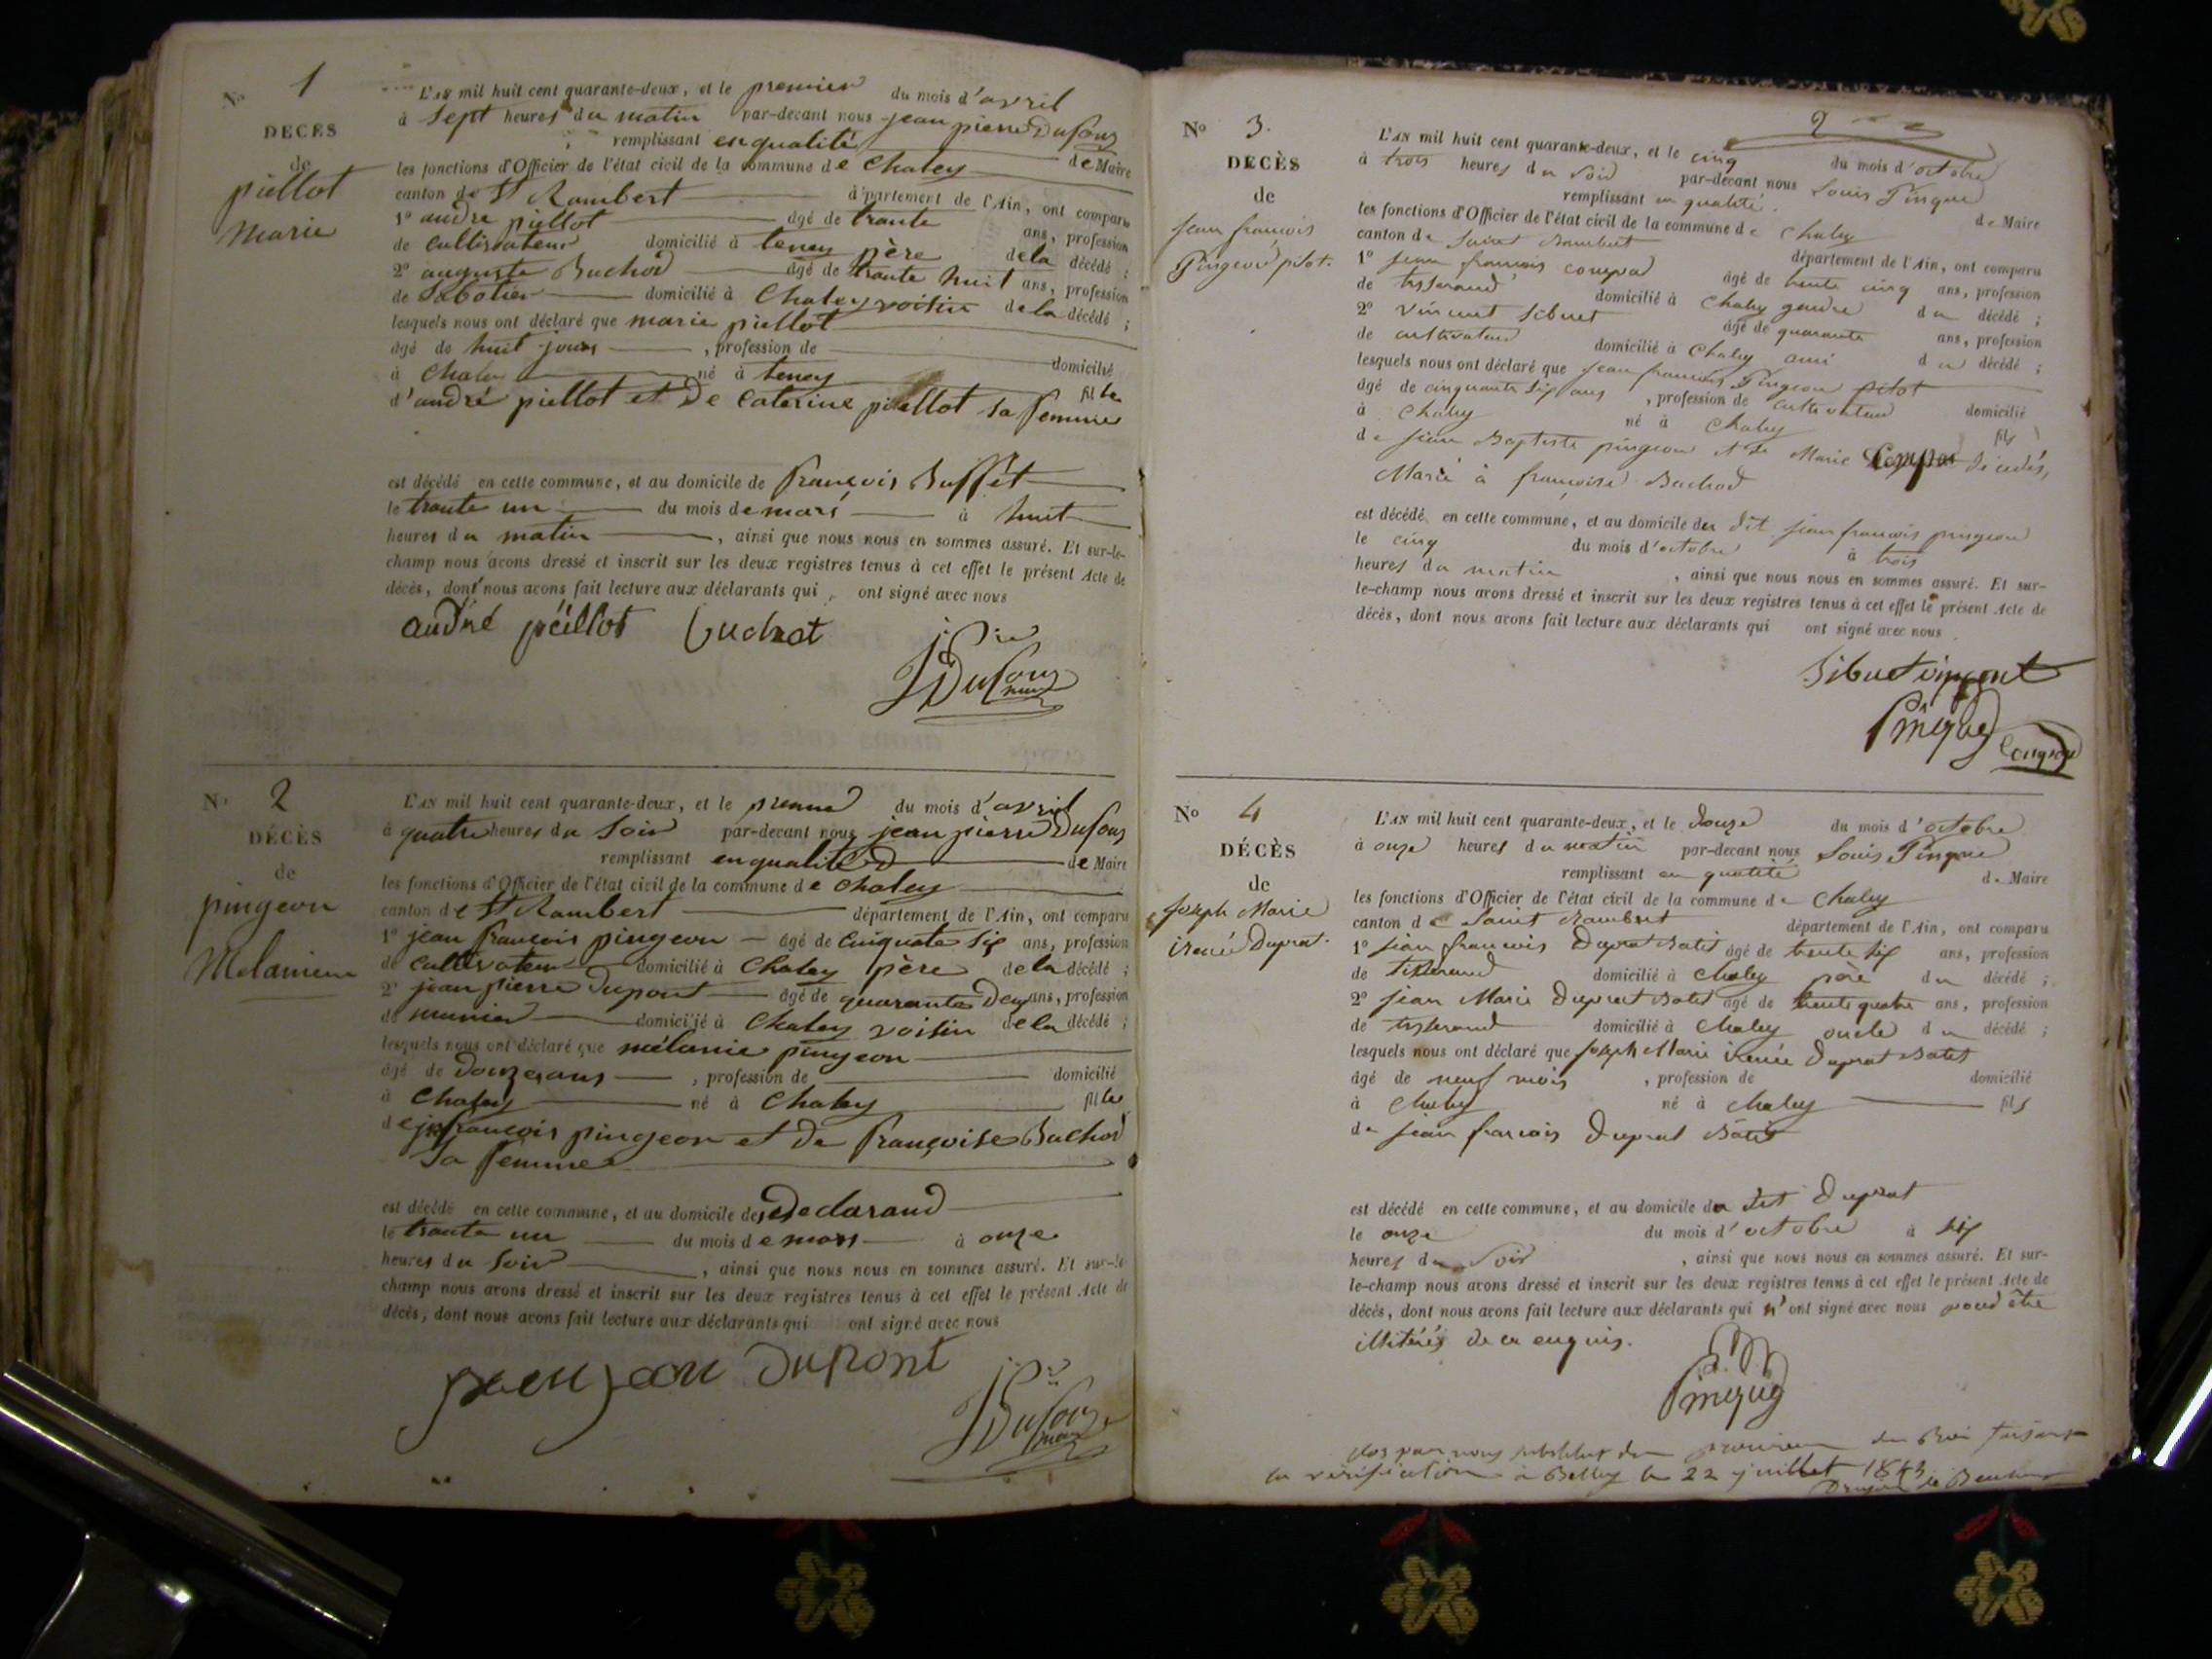 No 1
DÉCÈS
de
piellot
marie
L'AN mil huit cent quarante-deux, et le premier du mois d'avril
à sept heures du matin par-devant nous jean pierre Dufour
remplissant en qualité de Maire
les fonctions d'Officier de l'état civil de la commune de Chaley
canton de St Rambert département de l'Ain, ont comparu
1º andre piellot âgé de trante ans, profession
de cultivateur domicilié à teney père de la décédé ;
2º auguste Buchod âgé de trante huit ans, profession
de Sabotier domicilié à Chaley voisin de la décédé ;
lesquels nous ont déclaré que marie piellot
âgé de huit jours, profession de domicilié
à Chaley né à teney fille
d'andré piellot et de Caterine piellot sa femme
est décédé en cette commune, et au domicile de françois Buffét
le trante un du mois de mars à huit
heures du matin, ainsi que nous nous en sommes assuré. Et sur-le-
champ nous avons dressé et inscrit sur les deux registres tenus à cet effet le présent Acte de
décès, dont nous avons fait lecture aux déclarants qui ont signé avec nous
andré péillot Buchot
J Pre
Dufour
maire
No 2
DÉCÈS
de
pingeon
Melanie
L'AN mil huit cent quarante-deux, et le premier du mois d'avril
à quatre heures du Soir par-devant nous jean pierre Dufour
remplissant en qualité de Maire
les fonctions d'Officier de l'état civil de la commune de chaley
canton de St Rambert département de l'Ain, ont comparu
1º jean françois pingeon âgé de cinquate six ans, profession
de cultivateur domicilié à Chaley père de la décédé ;
2º jean pierre Dupont âgé de quarante deux ans, profession
de munier domicilié à Chaley voisin de la décédé ;
lesquels nous ont déclaré que mélanie pingeon
âgé de douze ans, profession de domicilié
à Chaley né à Chaley fille
de jn françois pingeon et de françoise Buchod
sa femme
est décédé en cette commune, et au domicile de Declarand
le trante un du mois de mars à onze
heures du Soir, ainsi que nous nous en sommes assuré. Et sur-le-
champ nous avons dressé et inscrit sur les deux registres tenus à cet effet le présent Acte de
décès, dont nous avons fait lecture aux déclarants qui ont signé avec nous
DUPONT
J Pre
Dufour
maire
2
No 3.
DÉCÈS
de
Jean francois
Pingeon pitot.
L'AN mil huit cent quarante-deux, et le cinq du mois d'octobre
à trois heures du Soir par-devant nous Louis Pingue
remplissant en qualité de Maire
les fonctions d'Officier de l'état civil de la commune de Chaley
canton de Saint Rambert département de l'Ain, ont comparu
1º Jean francois âgé de trente cinq ans, profession
de tisserand domicilié à Chaley gendre du décédé ;
2º vincent Sibuet âgé de quarante ans, profession
de cultivateur domicilié à Chaley ami du décédé ;
lesquels nous ont déclaré que Jean francois Pingeon pitot
âgé de cinquante six ans, profession de cultivateur domicilié
à Chaley né à Chaley fils
de Jean Baptiste pingeon et de Marie décédés,
Marié à françoise Buchod
est décédé en cette commune, et au domicile du dit Jean francois pingeon
le cinq du mois d'octobre à trois
heures du matin, ainsi que nous nous en sommes assuré. Et sur-
le-champ nous avons dressé et inscrit sur les deux registres tenus à cet effet le présent Acte de
décès, dont nous avons fait lecture aux déclarants qui ont signé avec nous
Sibuet vincent
Pingue
No 4
DÉCÈS
de
Joseph Marie
irenée Duprat.
L'AN mil huit cent quarante-deux, et le douze du mois d'octobre
à onze heures du matin par-devant nous Louis Pingue
remplissant en qualité de Maire
les fonctions d'Officier de l'état civil de la commune de Chaley
canton de Saint Rambert département de l'Ain, ont comparu
1º Jean francois Duprat Batet âgé de trente six ans, profession
de Tisserand domicilié à Chaley père du décédé ;
2º Jean Marie Duprat Batet âgé de trente quatre ans, profession
de tisserand domicilié à Chaley oncle du décédé ;
lesquels nous ont déclaré que Joseph Marie irenée Duprat Batet
âgé de neuf mois, profession de domicilié
à Chaley né à Chaley fils
de Jean francois Duprat Batet
est décédé en cette commune, et au domicile du dit Duprat
le onze du mois d'octobre à six
heures du Soir, ainsi que nous nous en sommes assuré. Et sur-
le-champ nous avons dressé et inscrit sur les deux registres tenus à cet effet le présent Acte de
décès, dont nous avons fait lecture aux déclarants qui n'ont signé avec nous pour être
illitérés de ce enquis.
Pingue
clos par nous substitut du procureur du Roi faisant
la vérification à Belley le 22 juillet 1843